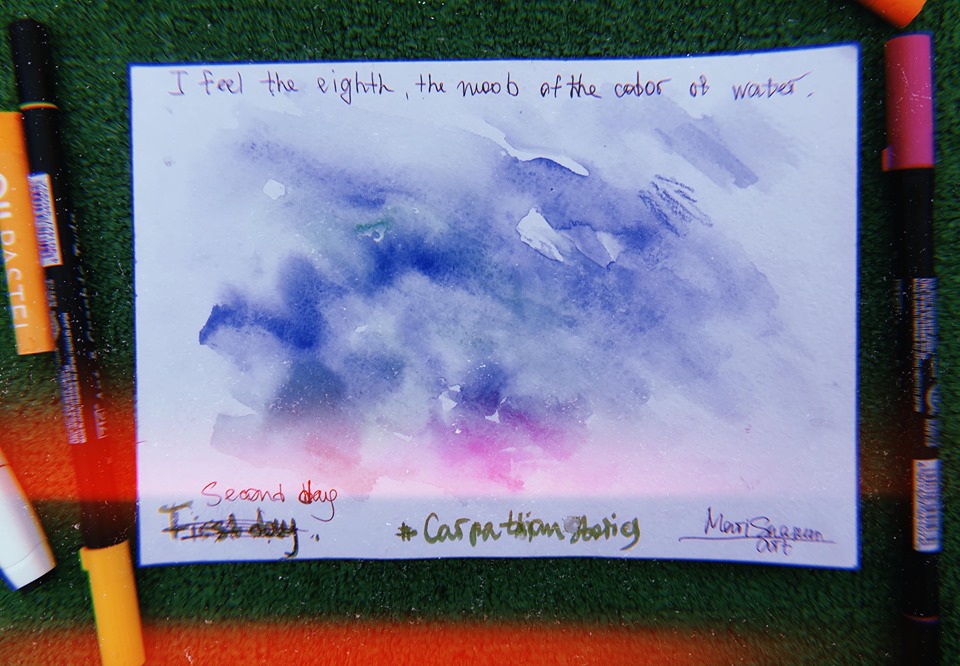 I feel the eighth, the moob of the cobor of water.
Second day
First day.
# Carpathian stories
Mari
art
OIL PASTEL